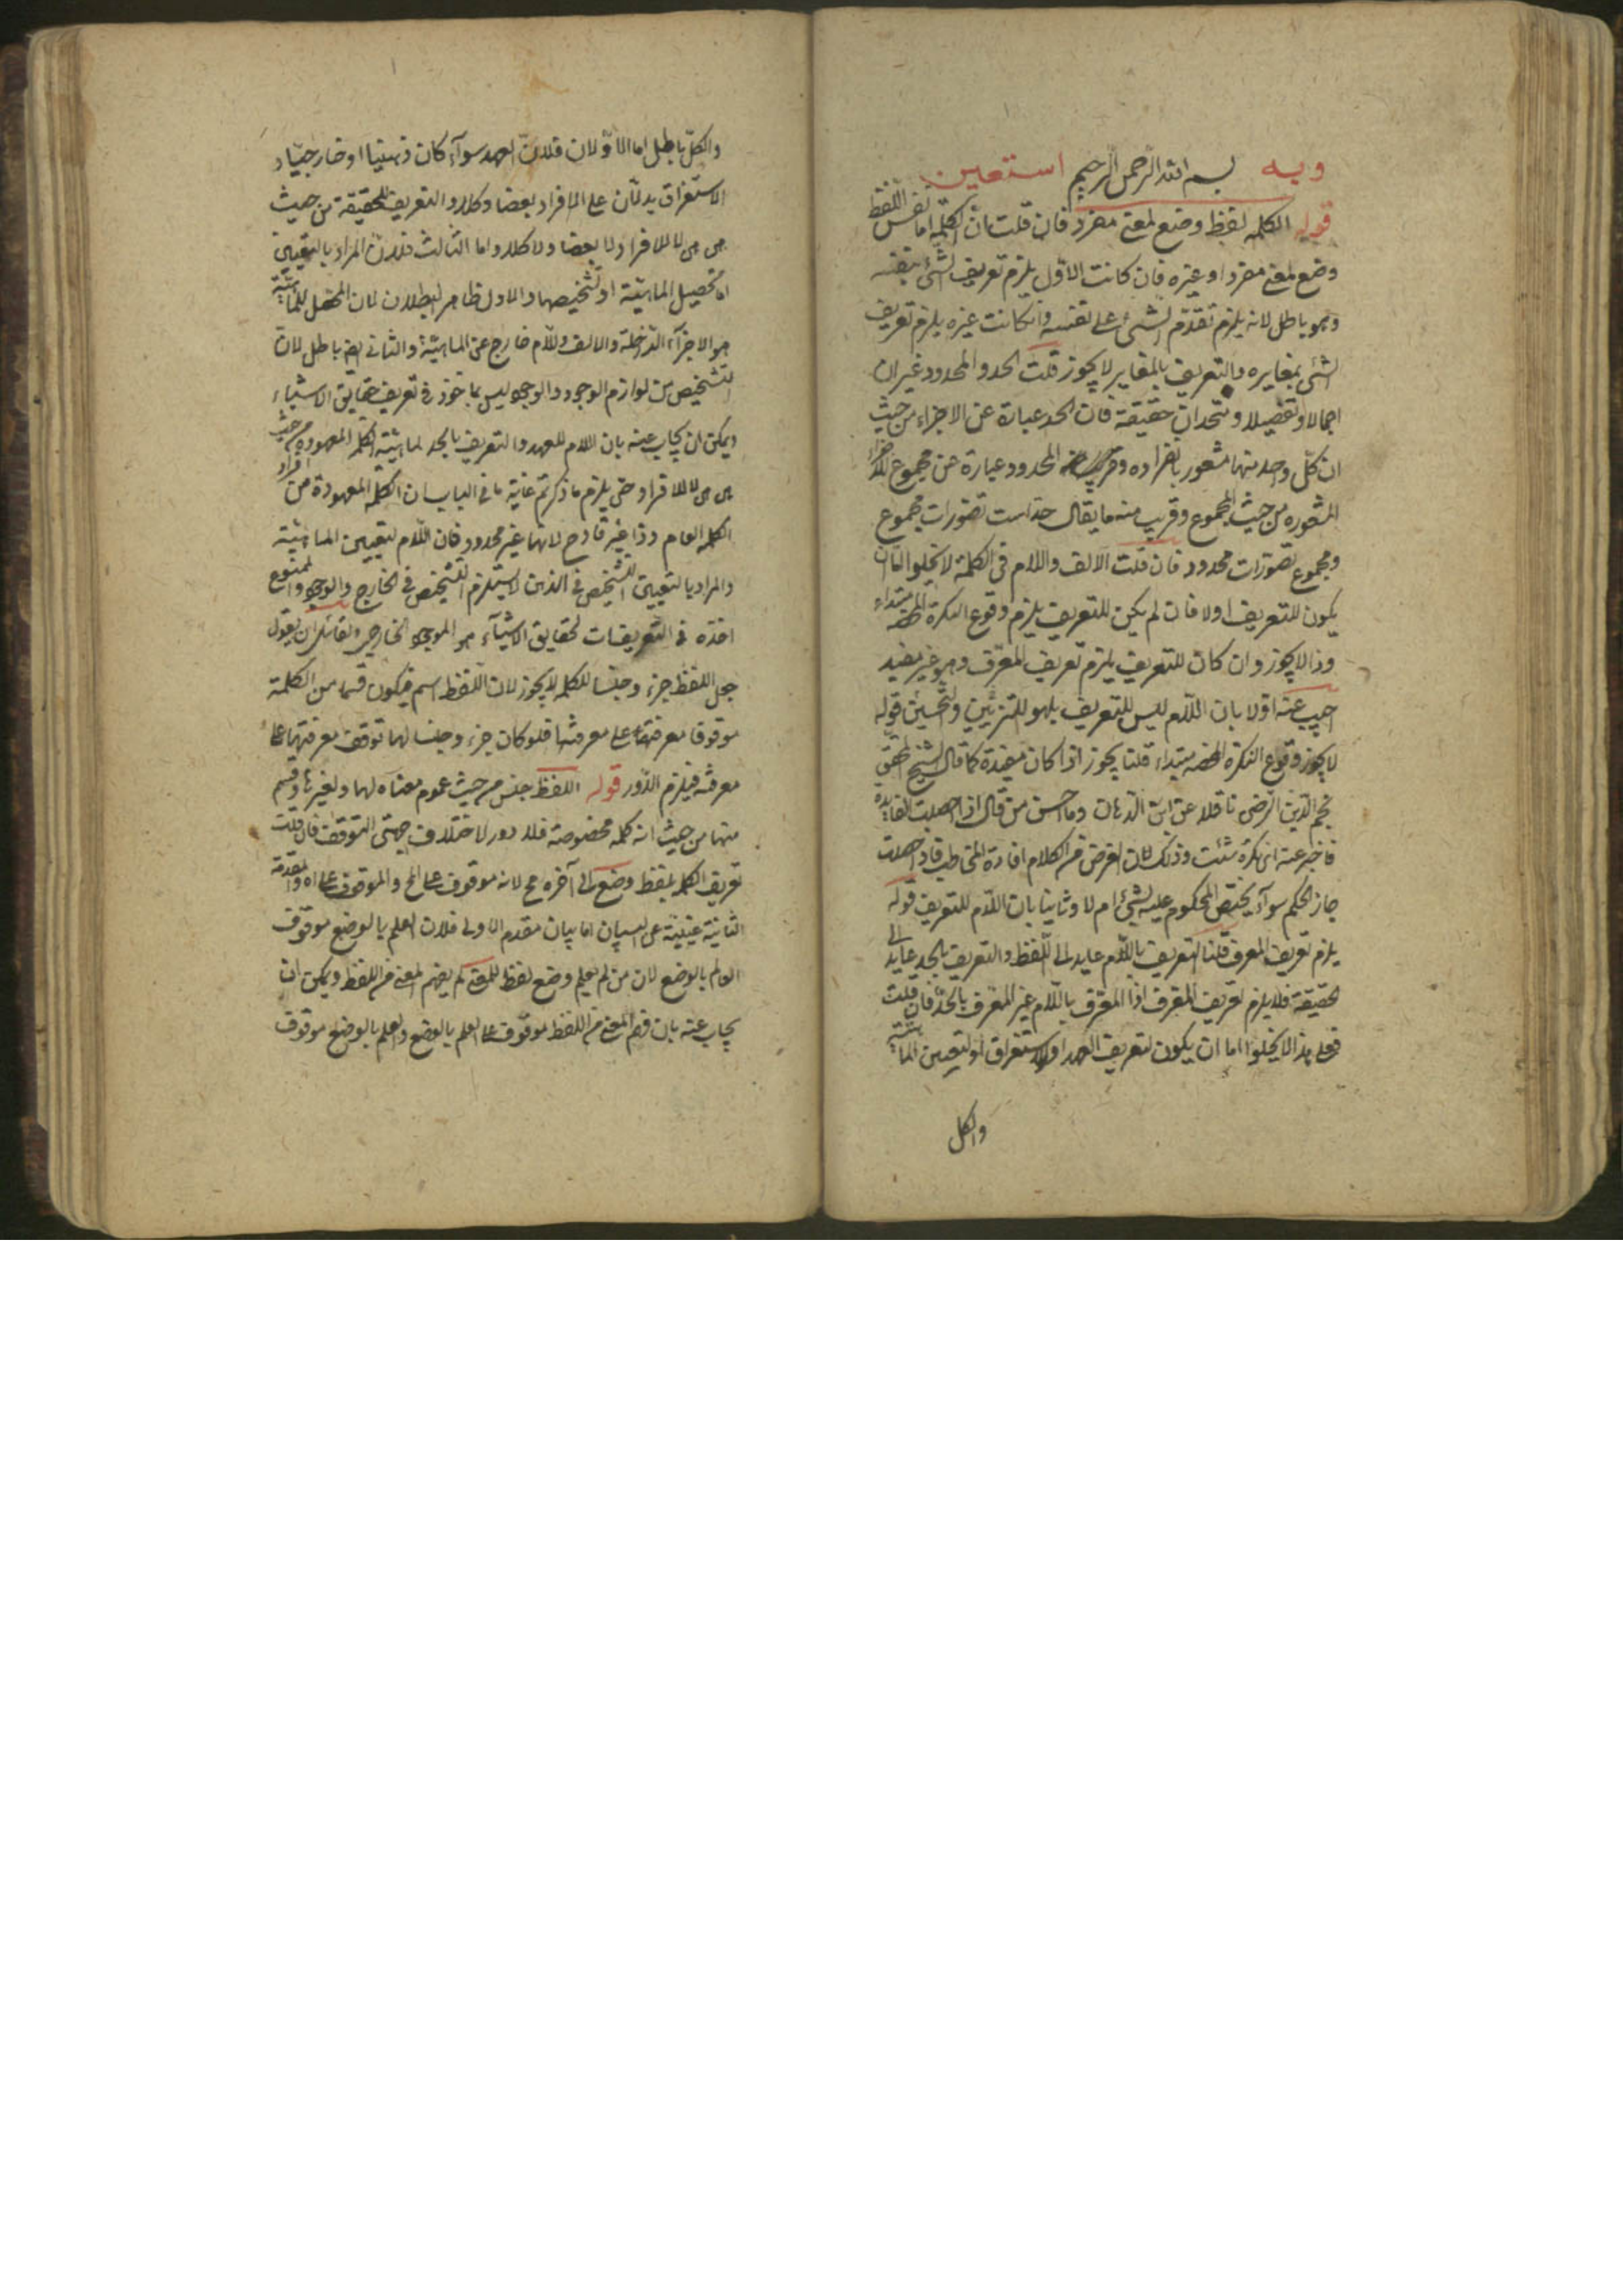 وبه بسم الله الرحمن الرحيم استعين
قوله الكلمة لفظ وضع لمعنى مفرد فان قلت بان الكلمة اما نفس اللفظ
وضع لمعنى مفرد او غيره فان كانت الاوّل يلزم تعريف الشئ بنفسه
وهو باطل لانه يلزم تقدّم الشئ على نفسه وان كانت غيره يلزم تعريف
الشئ بمغايره والتعريف بالمغاير لا يجوز قلت الحد والمحدود غيران
اجمالا وتفصيلا ومتحدان حقيقة فان الحد عبارة عن الاجزاء من حيث
ان كلّ واحد منها مشعور بانفراده والمحدود عبارة عن مجموع الاجزاء
المشعوره من حيث المجموع وقريب منه ما يقال حد است تصورات مجموع
ومجموع تصوّرات محدود فان قلت الالف واللام فى الكلمة لا يخلوا اما ان
يكون للتعريف اولا فان لم يكن للتعريف يلزم وقوع النكرة المحضة مبتداء
وذا لا يجوز وان كان للتعريف يلزم تعريف المعرّف وهو غير مفيد
اجيب عنه اوّلا بان اللام ليس للتعريف بل هو للتزيين والتحسين قوله
لا يجوز وقوع النكرة المحضه مبتداء قلنا يجوز اذا كان مفيدة كما قال الشيخ المحقق
نجم الدين الرضى ناقلا عن ابن الدهان وما احسن من قال اذا حصلت الفايدة
فاخبر عنه اىّ نكرة شئت وذلك لان الغرض من الكلام افادة المخاطب فاذا حصلت
جاز الحكم سوآء يختص المحكوم عليه بشئ ام لا وثانيا بان اللام للتعريف قوله
يلزم تعريف المعرف قلنا التعريف باللام عايد الى اللفظ والتعريف بالحد عايد الى
الحقيقة فلا يلزم تعريف المعرف اذا المعرّف باللام غير المعرف بالحدّ فان قلت
فعلى هذا لا يخلوا اما ان يكون لتعريف العهد او الاستغراق او لتعيين الماهية
والكل
والكلّ باطل اما الاوّلان فلانّ العهد سوآء كان ذهنيا او خارجيّا و
الاستغراق يدلّان على الافراد بعضا وكلا والتعريف للحقيقة من حيث
هى هى لا للافراد لا بعضا ولا كلا واما الثالث فلانّ المراد بالتعيين
اما تحصيل الماهيّة او تشخيصها والاول ظاهر البطلان لان المحصل للماهيّة
هو الاجزآء الداخلة والالف واللام خارج عن الماهيّة والثانى ايضا باطل لان
التشخيص من لوازم الوجود والوجود ليس بماخوذ فى تعريف حقايق الاشياء
ويمكن ان يجاب عنه بان اللام للعهد والتعريف بالحد لماهيّة الكلمة المعهودة من حيث
هى هى لا للافراد حتى يلزم ما ذكرتم غاية ما فى الباب ان الكلمة المعهودة من افراد
الكلمة العام وذا غير قادح لانها غير محدود فان اللام لتعيين الماهيّة
والمراد بالتعيين التشخيص فى الذهن لا يستلزم التشخيص فى الخارج والوجود الممنوع
اخذه فى التعريفات لحقايق الاشيآء هو الموجود الخارجى ولقائل ان يقول
جعل اللفظ جزء وجنسا للكلمة لا يجوز لان اللفظ اسم فيكون قسما من الكلمة
موقوفا معرفتها على معرفتها فلو كان جزء وجنسا لها توقف معرفتها على
معرفته فيلزم الدّور قوله اللفظ جنس من حيث عموم معناه لها ولغيرها وقسم
منها من حيث انه كلمة مخصوصة فلا دور لاختلاف جهتى التوقف فان قلت
تعريف الكلمة بلفظ وضع الى آخره مح لانه موقوف على المح والموقوف على
الثانية غنيّة عن البيان اما بيان مقدم الاولى فلان العلم بالوضع موقوف
العالم بالوضع لان من لم يعلم وضع لفظ للمعنى لم يفهم المعنى من اللفظ ويمكن ان
يجاب عنه بان فهم المعنى من اللفظ موقوف على العلم بالوضع والعلم بالوضع موقوف